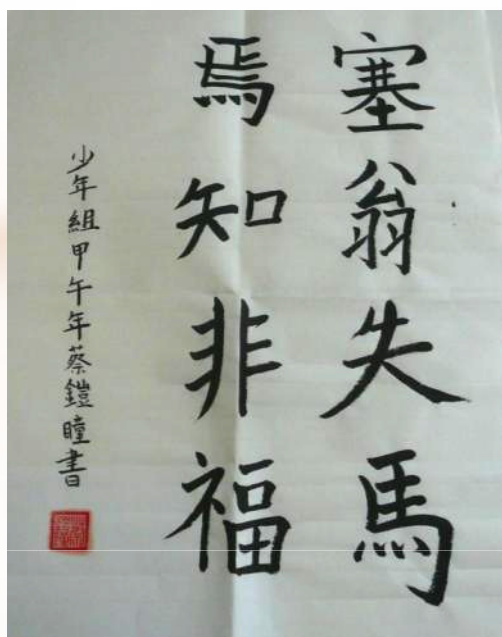 塞翁失馬
焉知非福
少年組甲午年蔡鎧瞳書